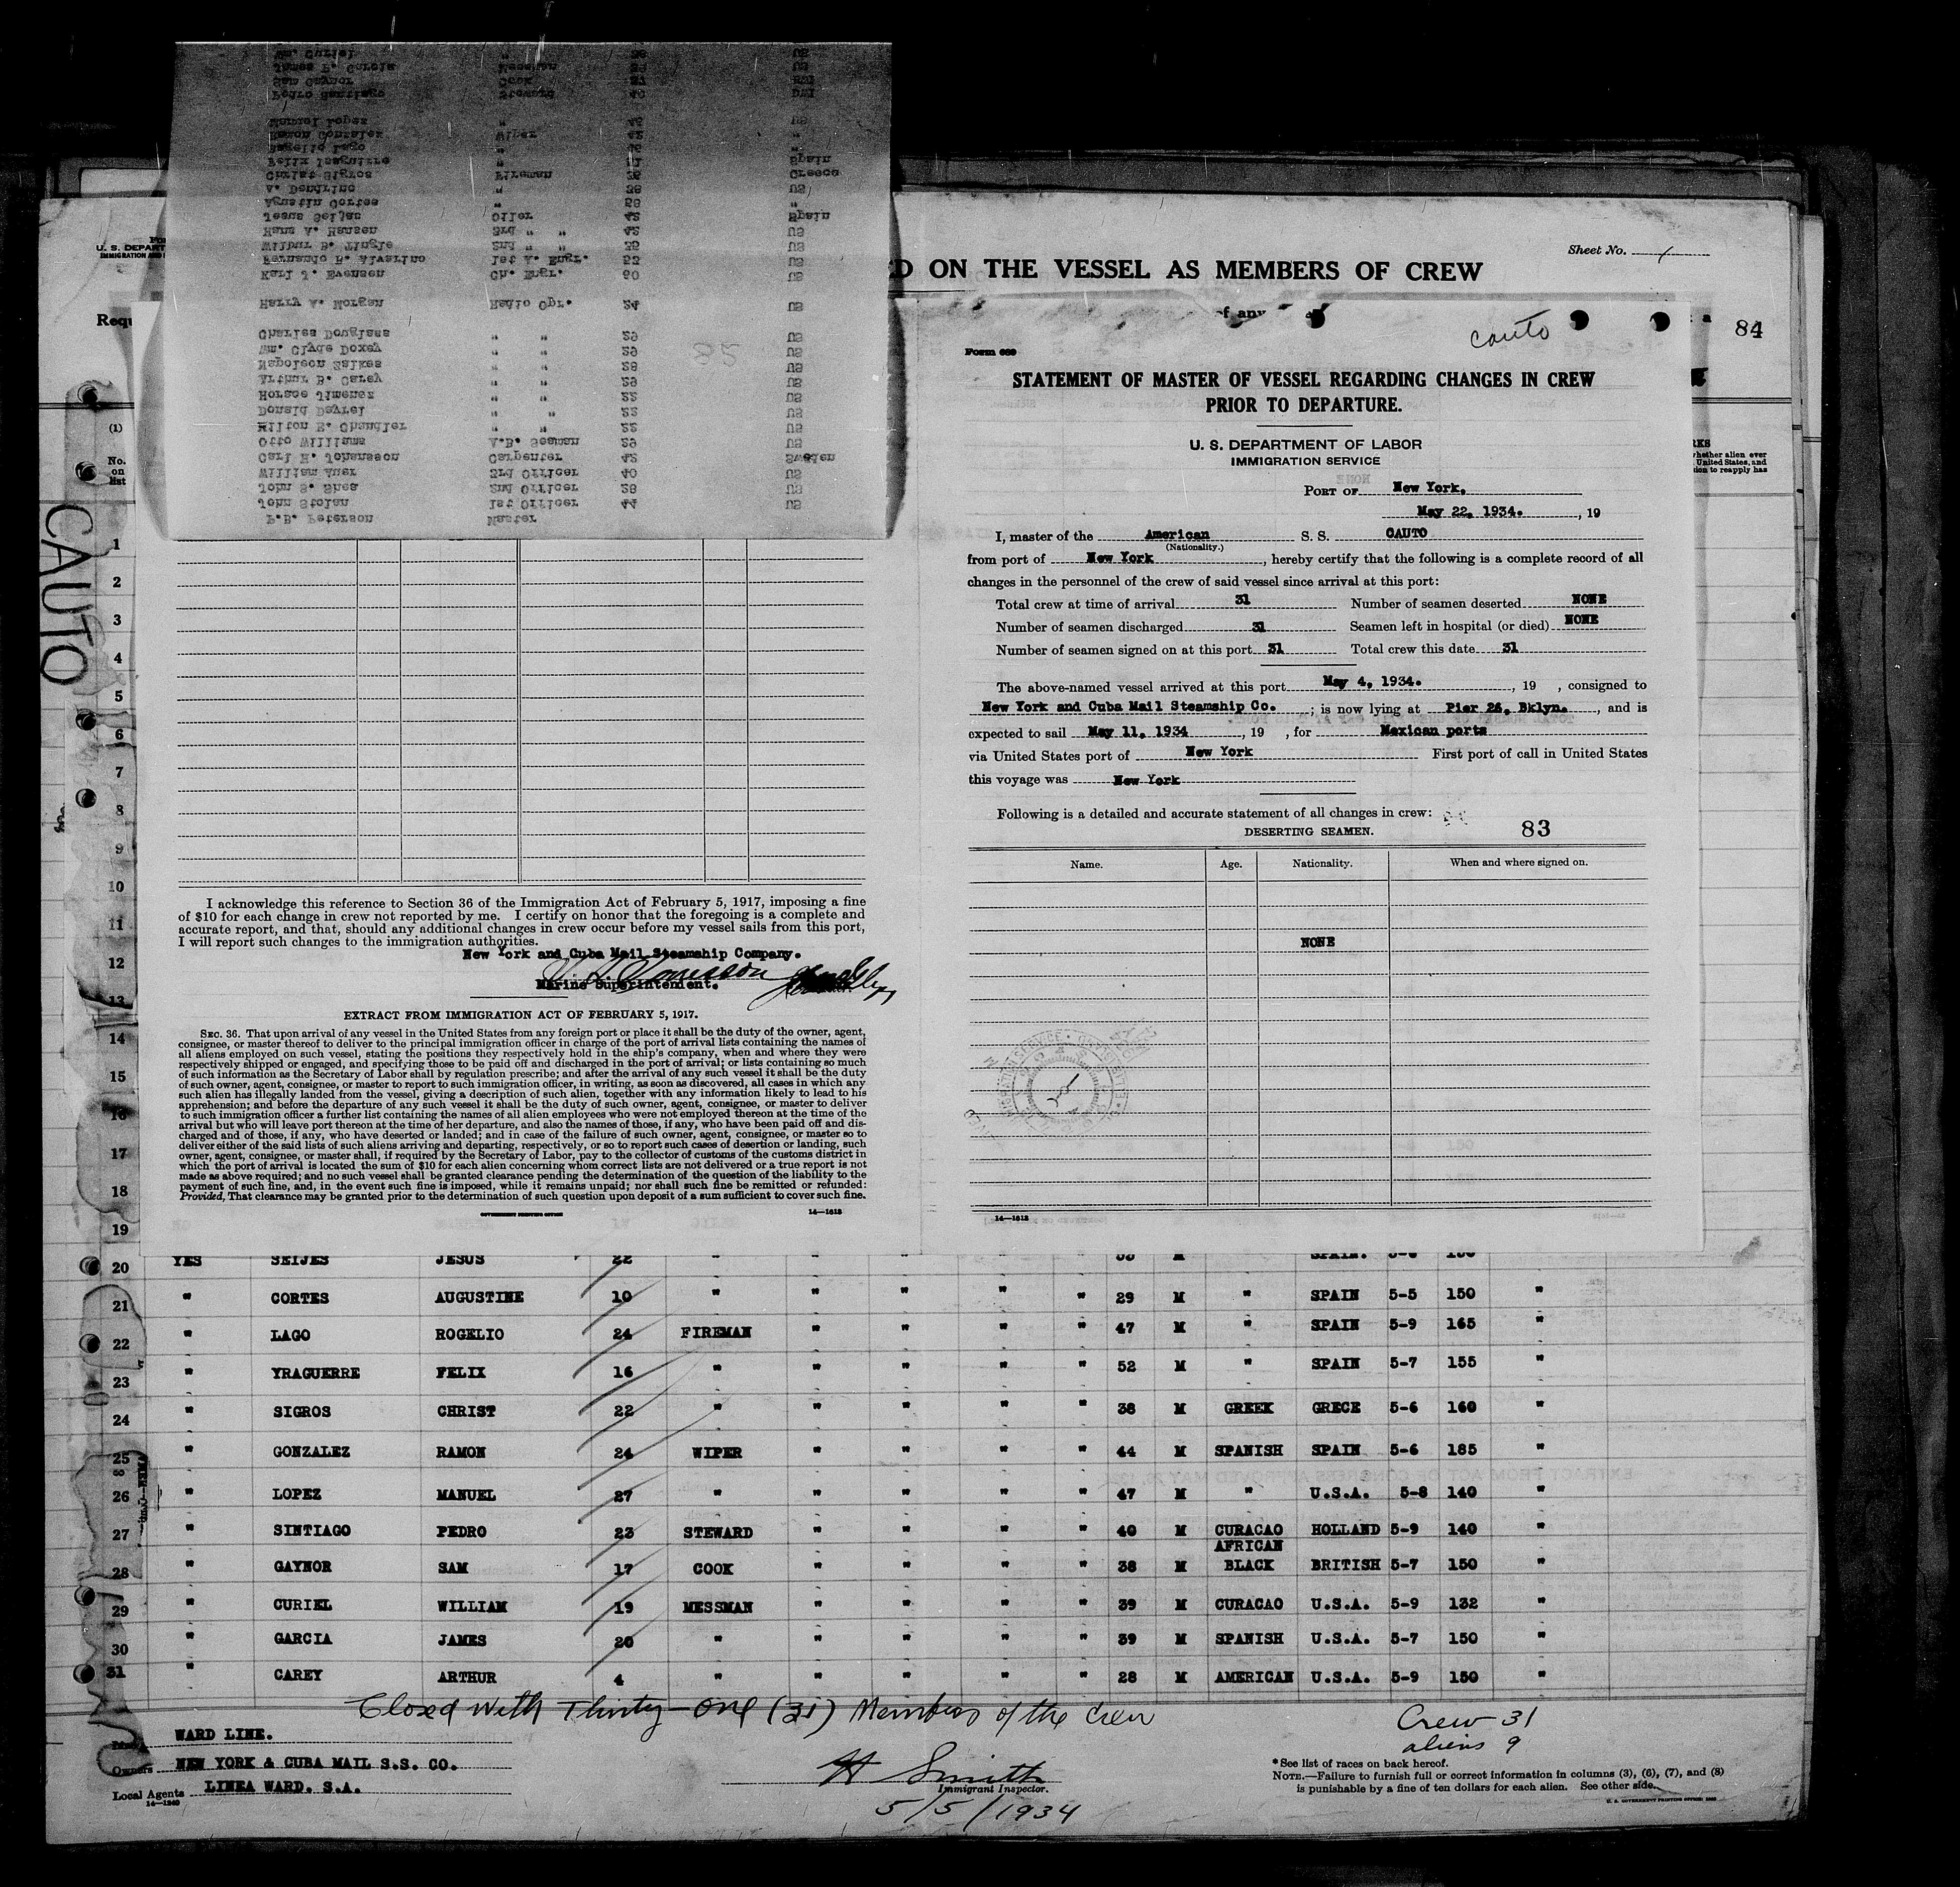 Wm. Curiel " 38 US
James F. Garcia Messman US
Sam Gaynor Cook 37 BWI
Pedro Santiago Steward 40 DWI
Manuel Lopez " US
Ramon Gonzalez Wiper 42 "
Rogelio Lago " "
Felix Isaguirre " 51 Spain
Christ Sigros Fireman Greece
A. Dendrino " 38 US
Agustin Cortes " "
Jesus Seijas Oiler 42 Spain
Hans A. Hansen 3rd " " 42 US
Wilbur B. Tingle 2nd " " 35 US
Fernando R. Alvarino 1st A. Engr. US
Karl J. Evensen Ch. Engr. 60 US
Harry A. Morgan Radio Opr. 24 US
Charles Douglass " " 29 US
Wm. Clyde Doxey " " 29 US
Napoleon Saikes " " 28 US
Arthur B. Carey " " 29 US
Horace Jimenez " " 22 US
Donald Dayrel " " 22 US
Milton E. Chandler " " 22 US
Otto Williams A.B. Seaman 29 US
Carl H. Johansson Carpenter 42 Sweden
William Auer 3rd Officer 40 US
John S. Shea 2nd Officer 28 US
John Stolan 1st Officer 44 US
P.B. Peterson Master
85
U. S. DEPART
IMMIGRATION AND
Requ
D ON THE VESSEL AS MEMBERS OF CREW
Sheet No. 1
of any
84
(1)
No. on list
CAUTO
RKS
whether alien ever
United States, and
ion to reapply has
1
2
3
4
5
6
7
8
9
10
11
12
13
14
15
16
17
18
19
I acknowledge this reference to Section 36 of the Immigration Act of February 5, 1917, imposing a fine
of $10 for each change in crew not reported by me. I certify on honor that the foregoing is a complete and
accurate report, and that, should any additional changes in crew occur before my vessel sails from this port,
I will report such changes to the immigration authorities.
New York and Cuba Mail Steamship Company.
Marine Superintendent.
EXTRACT FROM IMMIGRATION ACT OF FEBRUARY 5, 1917.
SEC. 36. That upon arrival of any vessel in the United States from any foreign port or place it shall be the duty of the owner, agent,
consignee, or master thereof to deliver to the principal immigration officer in charge of the port of arrival lists containing the names of
all aliens employed on such vessel, stating the positions they respectively hold in the ship's company, when and where they were
respectively shipped or engaged, and specifying those to be paid off and discharged in the port of arrival; or lists containing so much
of such information as the Secretary of Labor shall by regulation prescribe; and after the arrival of any such vessel it shall be the duty
of such owner, agent, consignee, or master to report to such immigration officer, in writing, as soon as discovered, all cases in which any
such alien has illegally landed from the vessel, giving a description of such alien, together with any information likely to lead to his
apprehension; and before the departure of any such vessel it shall be the duty of such owner, agent, consignee, or master to deliver
to such immigration officer a further list containing the names of all alien employees who were not employed thereon at the time of the
arrival but who will leave port thereon at the time of her departure, and also the names of those, if any, who have been paid off and dis-
charged and of those, if any, who have deserted or landed; and in case of the failure of such owner, agent, consignee, or master so to
deliver either of the said lists of such aliens arriving and departing, respectively, or so to report such cases of desertion or landing, such
owner, agent, consignee, or master shall, if required by the Secretary of Labor, pay to the collector of customs of the customs district in
which the port of arrival is located the sum of $10 for each alien concerning whom correct lists are not delivered or a true report is not
made as above required; and no such vessel shall be granted clearance pending the determination of the question of the liability to the
payment of such fine, and, in the event such fine is imposed, while it remains unpaid; nor shall such fine be remitted or refunded:
Provided, That clearance may be granted prior to the determination of such question upon deposit of a sum sufficient to cover such fine.
GOVERNMENT PRINTING OFFICE 14—1613
cauto
Form 689
STATEMENT OF MASTER OF VESSEL REGARDING CHANGES IN CREW
PRIOR TO DEPARTURE.
U. S. DEPARTMENT OF LABOR
IMMIGRATION SERVICE
PORT OF New York.
May 22, 1934. , 19
I, master of the American S. S. CAUTO
(Nationality.)
from port of New York , hereby certify that the following is a complete record of all
changes in the personnel of the crew of said vessel since arrival at this port:
Total crew at time of arrival 31 Number of seamen deserted NONE
Number of seamen discharged 31 Seamen left in hospital (or died) NONE
Number of seamen signed on at this port 31 Total crew this date 31
The above-named vessel arrived at this port May 4, 1934. , 19 , consigned to
New York and Cuba Mail Steamship Co. ; is now lying at Pier 26, Bklyn. , and is
expected to sail May 11, 1934 , 19 , for Mexican ports
via United States port of New York First port of call in United States
this voyage was New York
Following is a detailed and accurate statement of all changes in crew:
DESERTING SEAMEN. 83
Name. Age. Nationality. When and where signed on.
NONE
14—1613
20 YES SEIJES JESUS 22 " " " " " M SPAIN.
21 " CORTES AUGUSTINE 10 " " " " " 29 M " SPAIN 5-5 150 "
22 " LAGO ROGELIO 24 FIREMAN " " " " 47 M " SPAIN 5-9 165 "
23 " YRAGUERRE FELIX 16 " " " " " 52 M " SPAIN 5-7 155 "
24 " SIGROS CHRIST 22 " " " " " 38 M GREEK GRECE 5-6 160 "
25 " GONZALEZ RAMON 24 WIPER " " " " 44 M SPANISH SPAIN 5-6 185 "
26 " LOPEZ MANUEL 27 " " " " " 47 M " U.S.A. 5-8 140 "
27 " SINTIAGO PEDRO 23 STEWARD " " " " 40 M CURACAO HOLLAND 5-9 140 "
AFRICAN
28 " GAYNOR SAM 17 COOK " " " " 38 M BLACK BRITISH 5-7 150 "
29 " CURIEL WILLIAM 19 MESSMAN " " " " 39 M CURACAO U.S.A. 5-9 132 "
30 " GARCIA JAMES 20 " " " " " 39 M SPANISH U.S.A. 5-7 150 "
31 " CAREY ARTHUR 4 " " " " " 28 M AMERICAN U.S.A. 5-9 150 "
Closed With Thirty-One (31) Members of the Crew
Crew 31
aliens 9
WARD LINE.
Owners NEW YORK & CUBA MAIL S.S. CO.
Local Agents LINEA WARD. S.A.
14—1240
H Smith
Immigrant Inspector.
5/5/1934
*See list of races on back hereof.
NOTE.—Failure to furnish full or correct information in columns (3), (6), (7), and (8)
is punishable by a fine of ten dollars for each alien. See other side.
U. S. GOVERNMENT PRINTING OFFICE